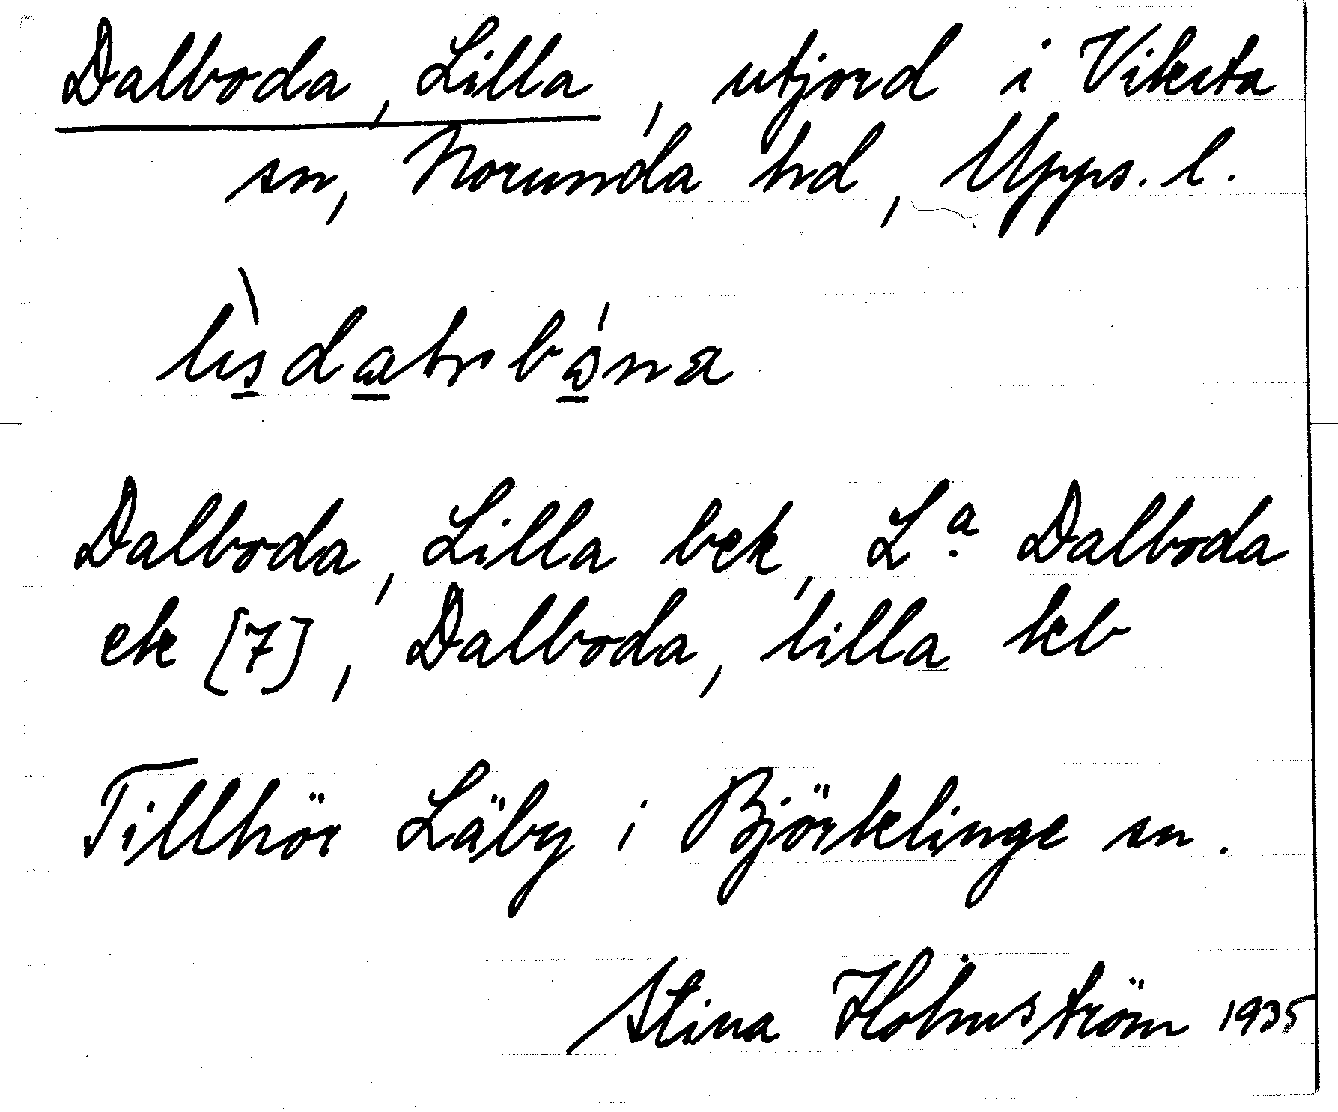 Dalboda, Lilla, utjord i Viksta
sn, Norunda hd, Upps. l.
Dalboda, Lilla bek, L:a Dalboda
ek [7], Dalboda, lilla kb
Tillhör Läby i Björklinge sn.
Stina Holmström 1935